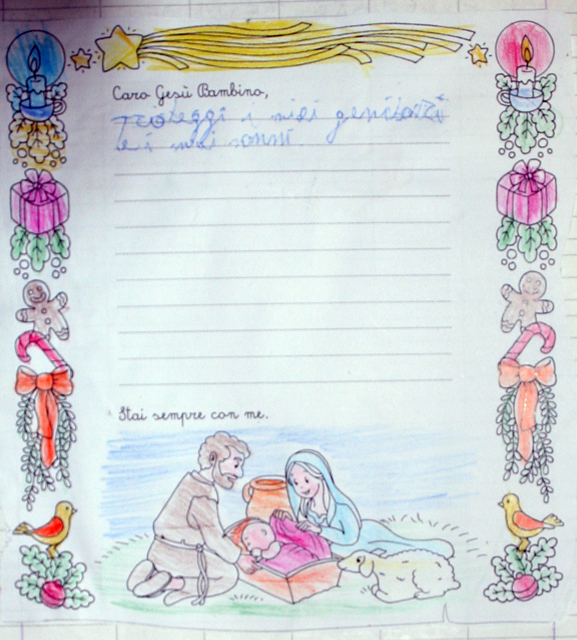 Caro Gesù Bambino,
proteggi i miei genitori
e i miei nonni.
Stai sempre con me.